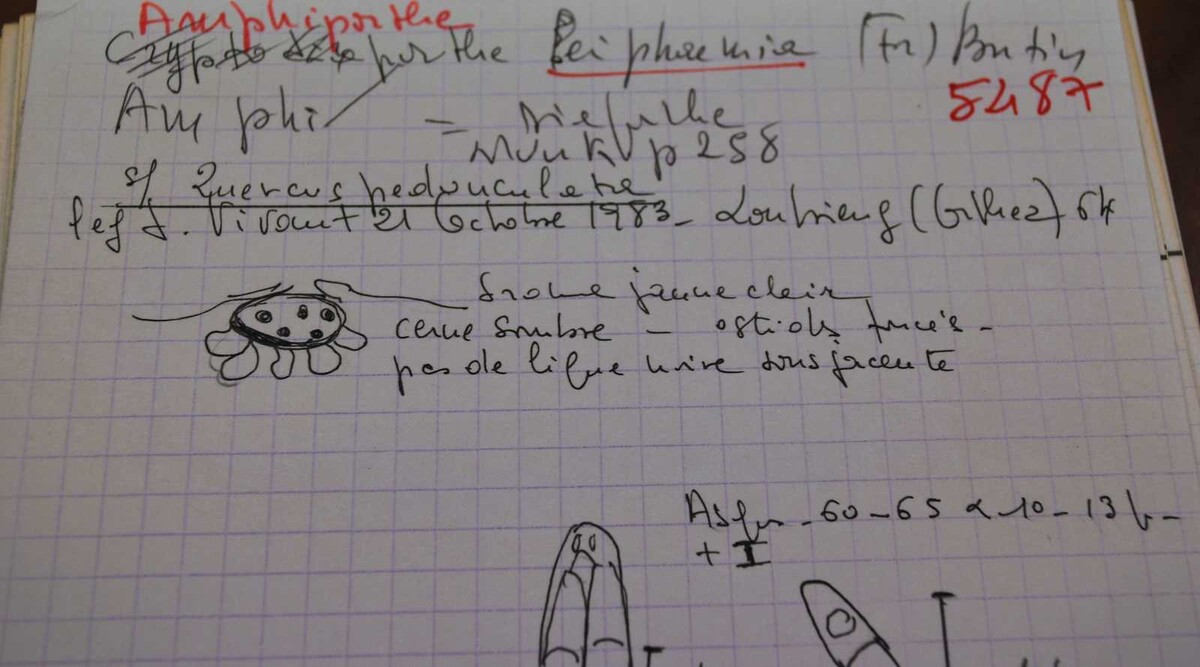 Amphiporthe
porthe leiphaemia (Fr) Butin
5487
Amphi
= 
Munk p 258
s/ Quercus pedonculata
leg J. Vivant 21 Octobre 1983 - Loubieng (Gilhez) 64
Strome jaune clair
cerné sombre - ostioles foncés -
pas de ligne noire sous jacente
60-65 x 10-13 µ -
+ I